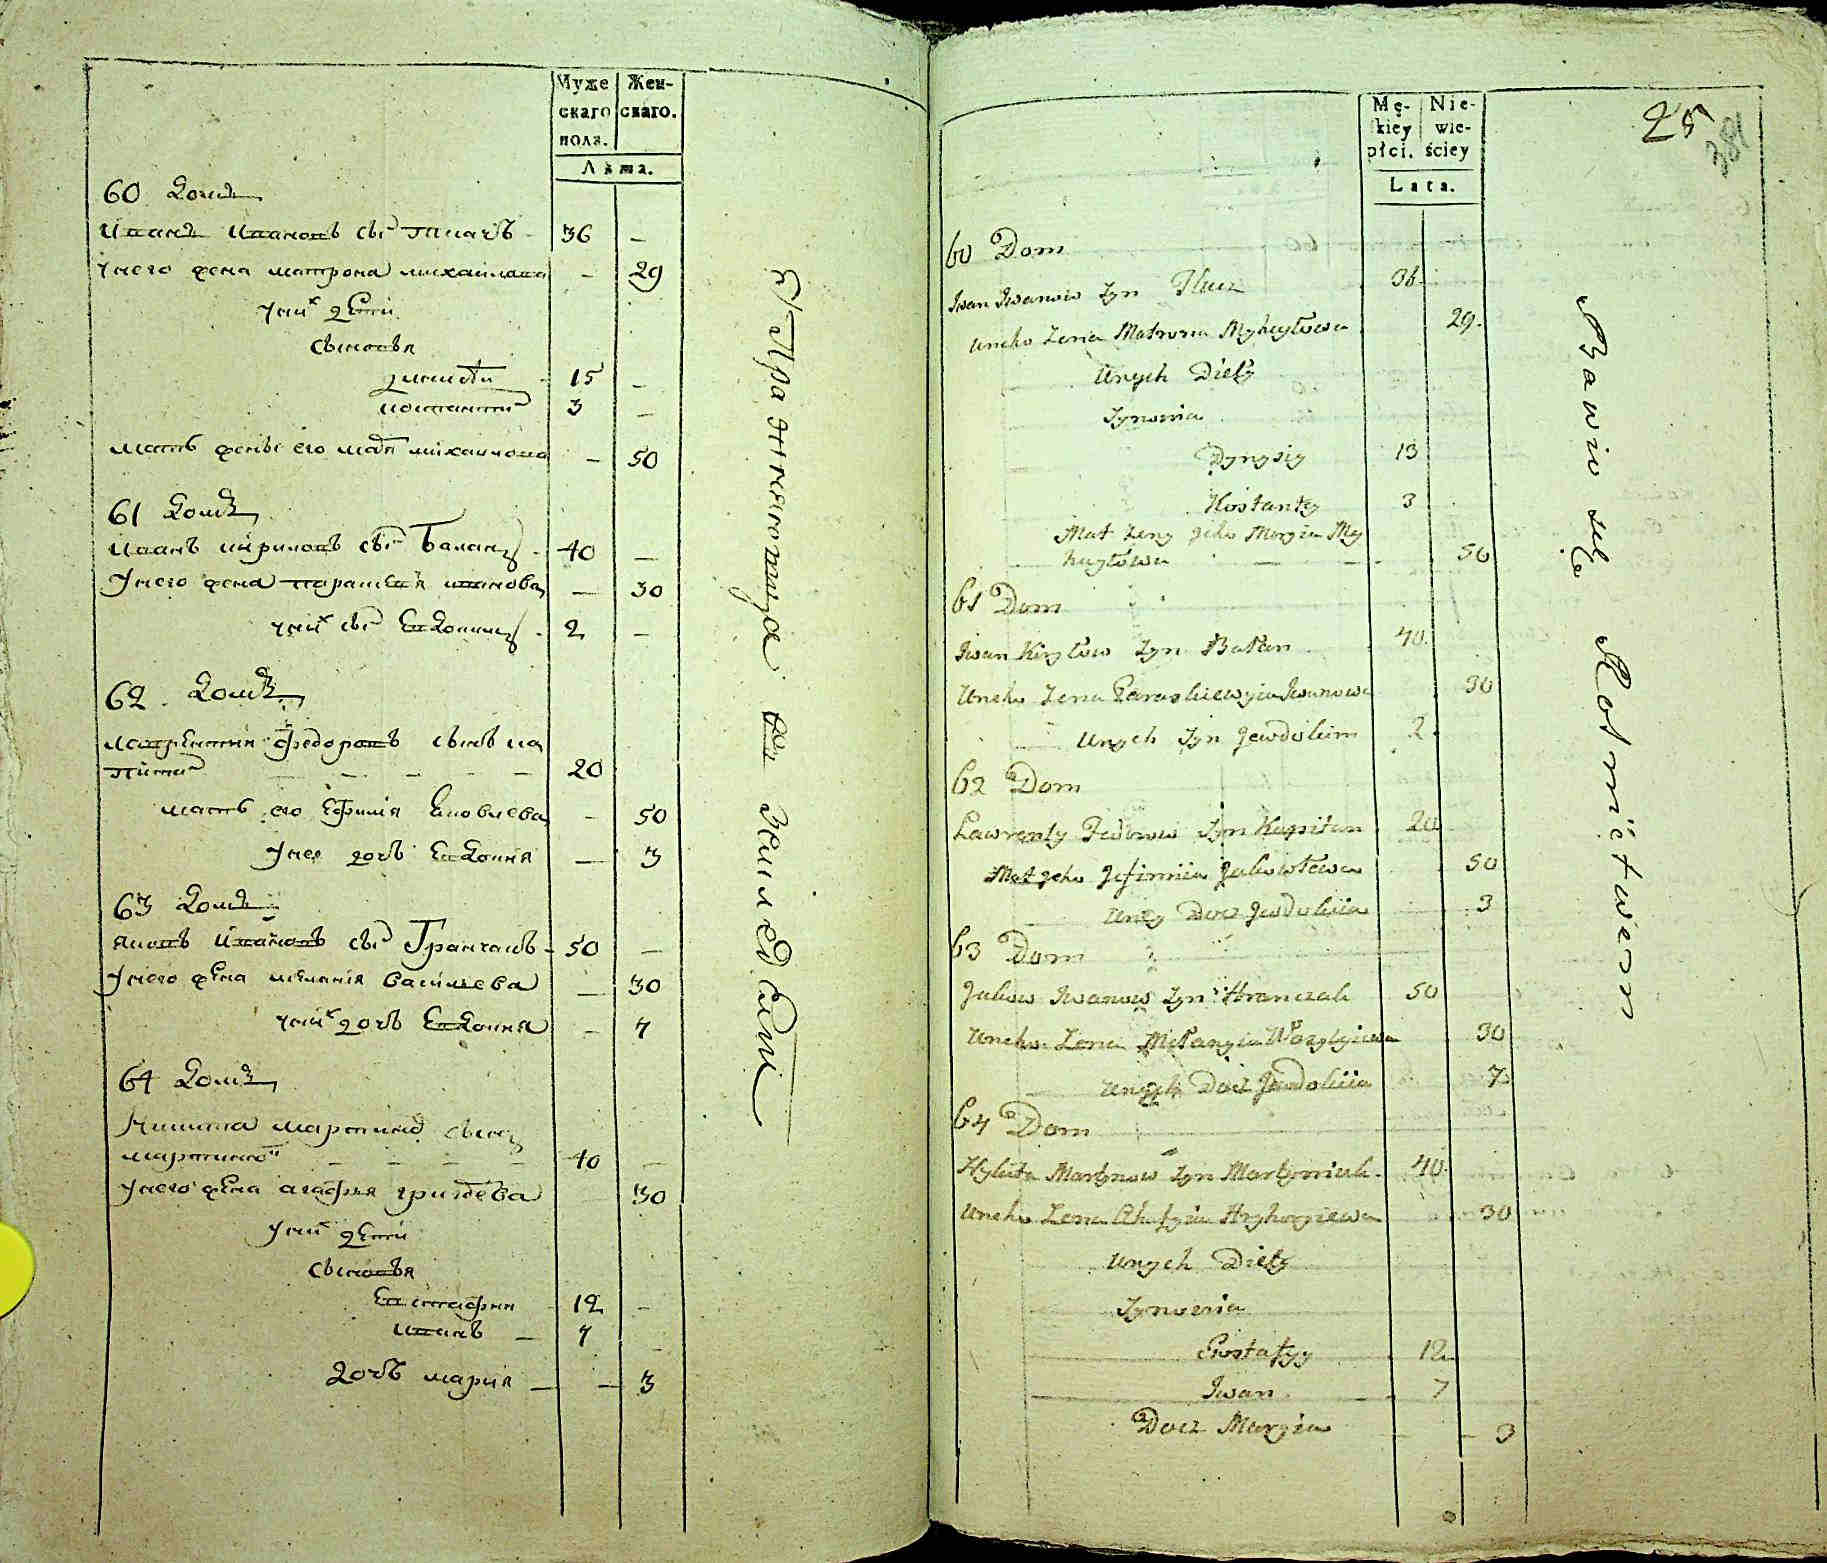 Муже
скаго
пола.
Жен-
скаго.
Лѣта.
60 Домъ
Иванъ Ивановъ сынъ Ткачъ - 36 —
У него жена матрона михаилова — 29
У них дети
Сыновья
Дионисий - 15 —
константий 3 —
мать жены его мария михаилова — 50
61 Домъ
Иванъ кириловъ сынъ Баланъ - 40 —
У него жена параскевия иванова — 30
у них сынъ Евдокимъ - 2 —
62 Домъ
лаврентий федоровъ сынъ ка
питанъ — — — — 20
мать его Ефимия Яковлева — 50
У нее дочь Евдокия — 3
63 Домъ
яковъ Ивановъ сынъ Гранчакъ - 50 —
У него жена мелания василиева — 30
у них дочь Евдокия — 7
64 Домъ
Никита мартиновъ сынъ
мартинюкъ — — — — 40 —
У него жена агафия григориева 30
У них дети
Сыновья
Евстафии 12 —
иванъ — 7
дочь мария — — 3
Упражняются въ земледелии
Mę-
kiey
płci.
Nie-
wie-
ściey
Lata.
25
381
60 Dom
Iwan Iwanow Syn Tkacz 36.
Uneho Zena Matrona Myhayłowa 29.
Unych Diety
Synowia
Dynysiy 13
Kostanty 3
Mat Zeny Jeho Maryia My
hayłowa — — - 50
61 Dom
Iwan Kiryłow Syn Bałan 40.
Uneho Zena Paraskiewyia Iwanowa 30
Unych Syn Jewdokim 2.
62 Dom
Ławrenty Fedorow Syn Kapitan 20
Mat Jeho Jefimiia Jakowłewa 50
Uney Docz Jewdokiia 3
63 Dom
Jakow Iwanow Syn Hranczak 50
Uneho Zena Mełanyia Wasylyiewa 30
Unych Docz Jewdokiia 7
64 Dom
Nykita Martynow Syn Martyniuk. 40.
Uneho Zena Ahafyia Hryhoryiewa 30
Unych Diety
Synowia
Ewstafyy 12
Iwan 7
Docz Maryia — 3
Bawio się Rolnictwem